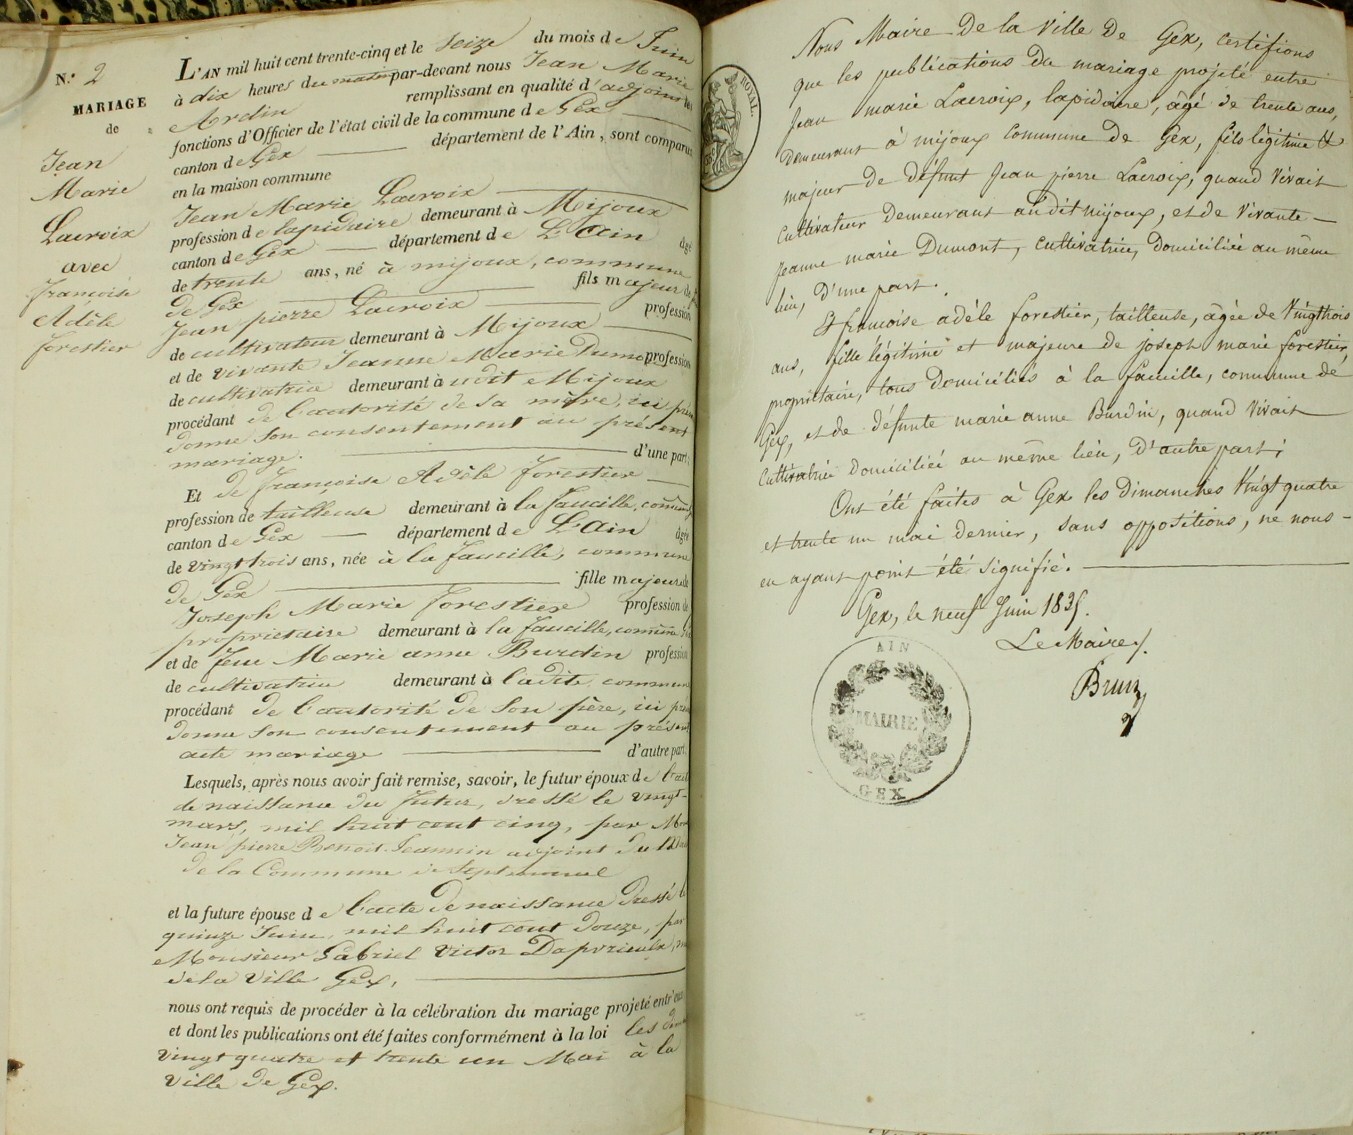 N.º 2
MARIAGE
de
Jean
Marie
Lacroix
avec
françoise
Adèle
forestier
L'AN mil huit cent trente-cinq et le seize du mois de Juin
à dix heures du matin par-devant nous Jean Marie
Ardin remplissant en qualité d'adjoint les
fonctions d'Officier de l'état civil de la commune de Gex
canton de Gex département de l'Ain, sont comparus
en la maison commune
Jean Marie Lacroix
profession de lapidaire demeurant à Mijoux
canton de Gex département de L'Ain âgé
de trente ans, né à mijoux, commune
de Gex fils majeur de
Jean pierre Lacroix profession
de cultivateur demeurant à Mijoux
et de vivante Jeanne Marie Dumont profession
de cultivatrice demeurant à udit Mijoux
procédant de l'autorité de sa mère, ici
donne son consentement au présent
mariage. d'une part;
Et de françoise Adèle forestier
profession de tailleuse demeurant à la faucille,
canton de Gex département de L'Ain âgée
de vingt trois ans, née à la faucille, commune
de Gex fille majeure de
Joseph Marie forestier profession de
propriétaire demeurant à la faucille,
et de feue Marie anne Burdin profession
de cultivatrice demeurant à ladite commune
procédant de l'autorité de son père, ici
donne son consentement au présent
acte mariage d'autre part.
Lesquels, après nous avoir fait remise, savoir, le futur époux de
de naissance du futur, dressé le vingt-
mars, mil huit cent cinq, par
Jean pierre Benoit Jeannin adjoint du
de la Commune de Septmoncel
et la future épouse de l'acte de naissance dressé le
quinze Juin, mil huit cent douze, par
Monsieur Gabriel Victor
de la ville Gex,
nous ont requis de procéder à la célébration du mariage projeté entr'eux
et dont les publications ont été faites conformément à la loi les
vingt quatre et trente un Mai à la
ville de Gex.
ROYAL.
Nous Maire De la ville De Gex, certifions
que les publications Du mariage projeté entre
Jean marie Lacroix, lapidaire, âgé de trente ans,
Demeurant à mijoux commune De Gex, fils légitime et
majeur de défunt Jean pierre Lacroix, quand vivait
cultivateur Demeurant audit mijoux, et de vivante
Jeanne marie Dumont, cultivatrice, domiciliée au même
lieu, D'une part.
Et françoise adèle forestier, tailleuse, âgée de Vingttrois
ans, fille légitime et majeure de joseph marie forestier,
propriétaire, tous Domiciliés à la faucille, commune de
Gex, et de défunte marie anne Burdin, quand vivait
cultivatrice domiciliée au même lieu, D'autre part;
Ont été faites à Gex les Dimanches Vingt quatre
et trente un mai dernier, sans oppositions, ne nous
en ayant point été signifié.
Gex, le neuf Juin 1835.
Le Maire,
AIN
MAIRIE
GEX